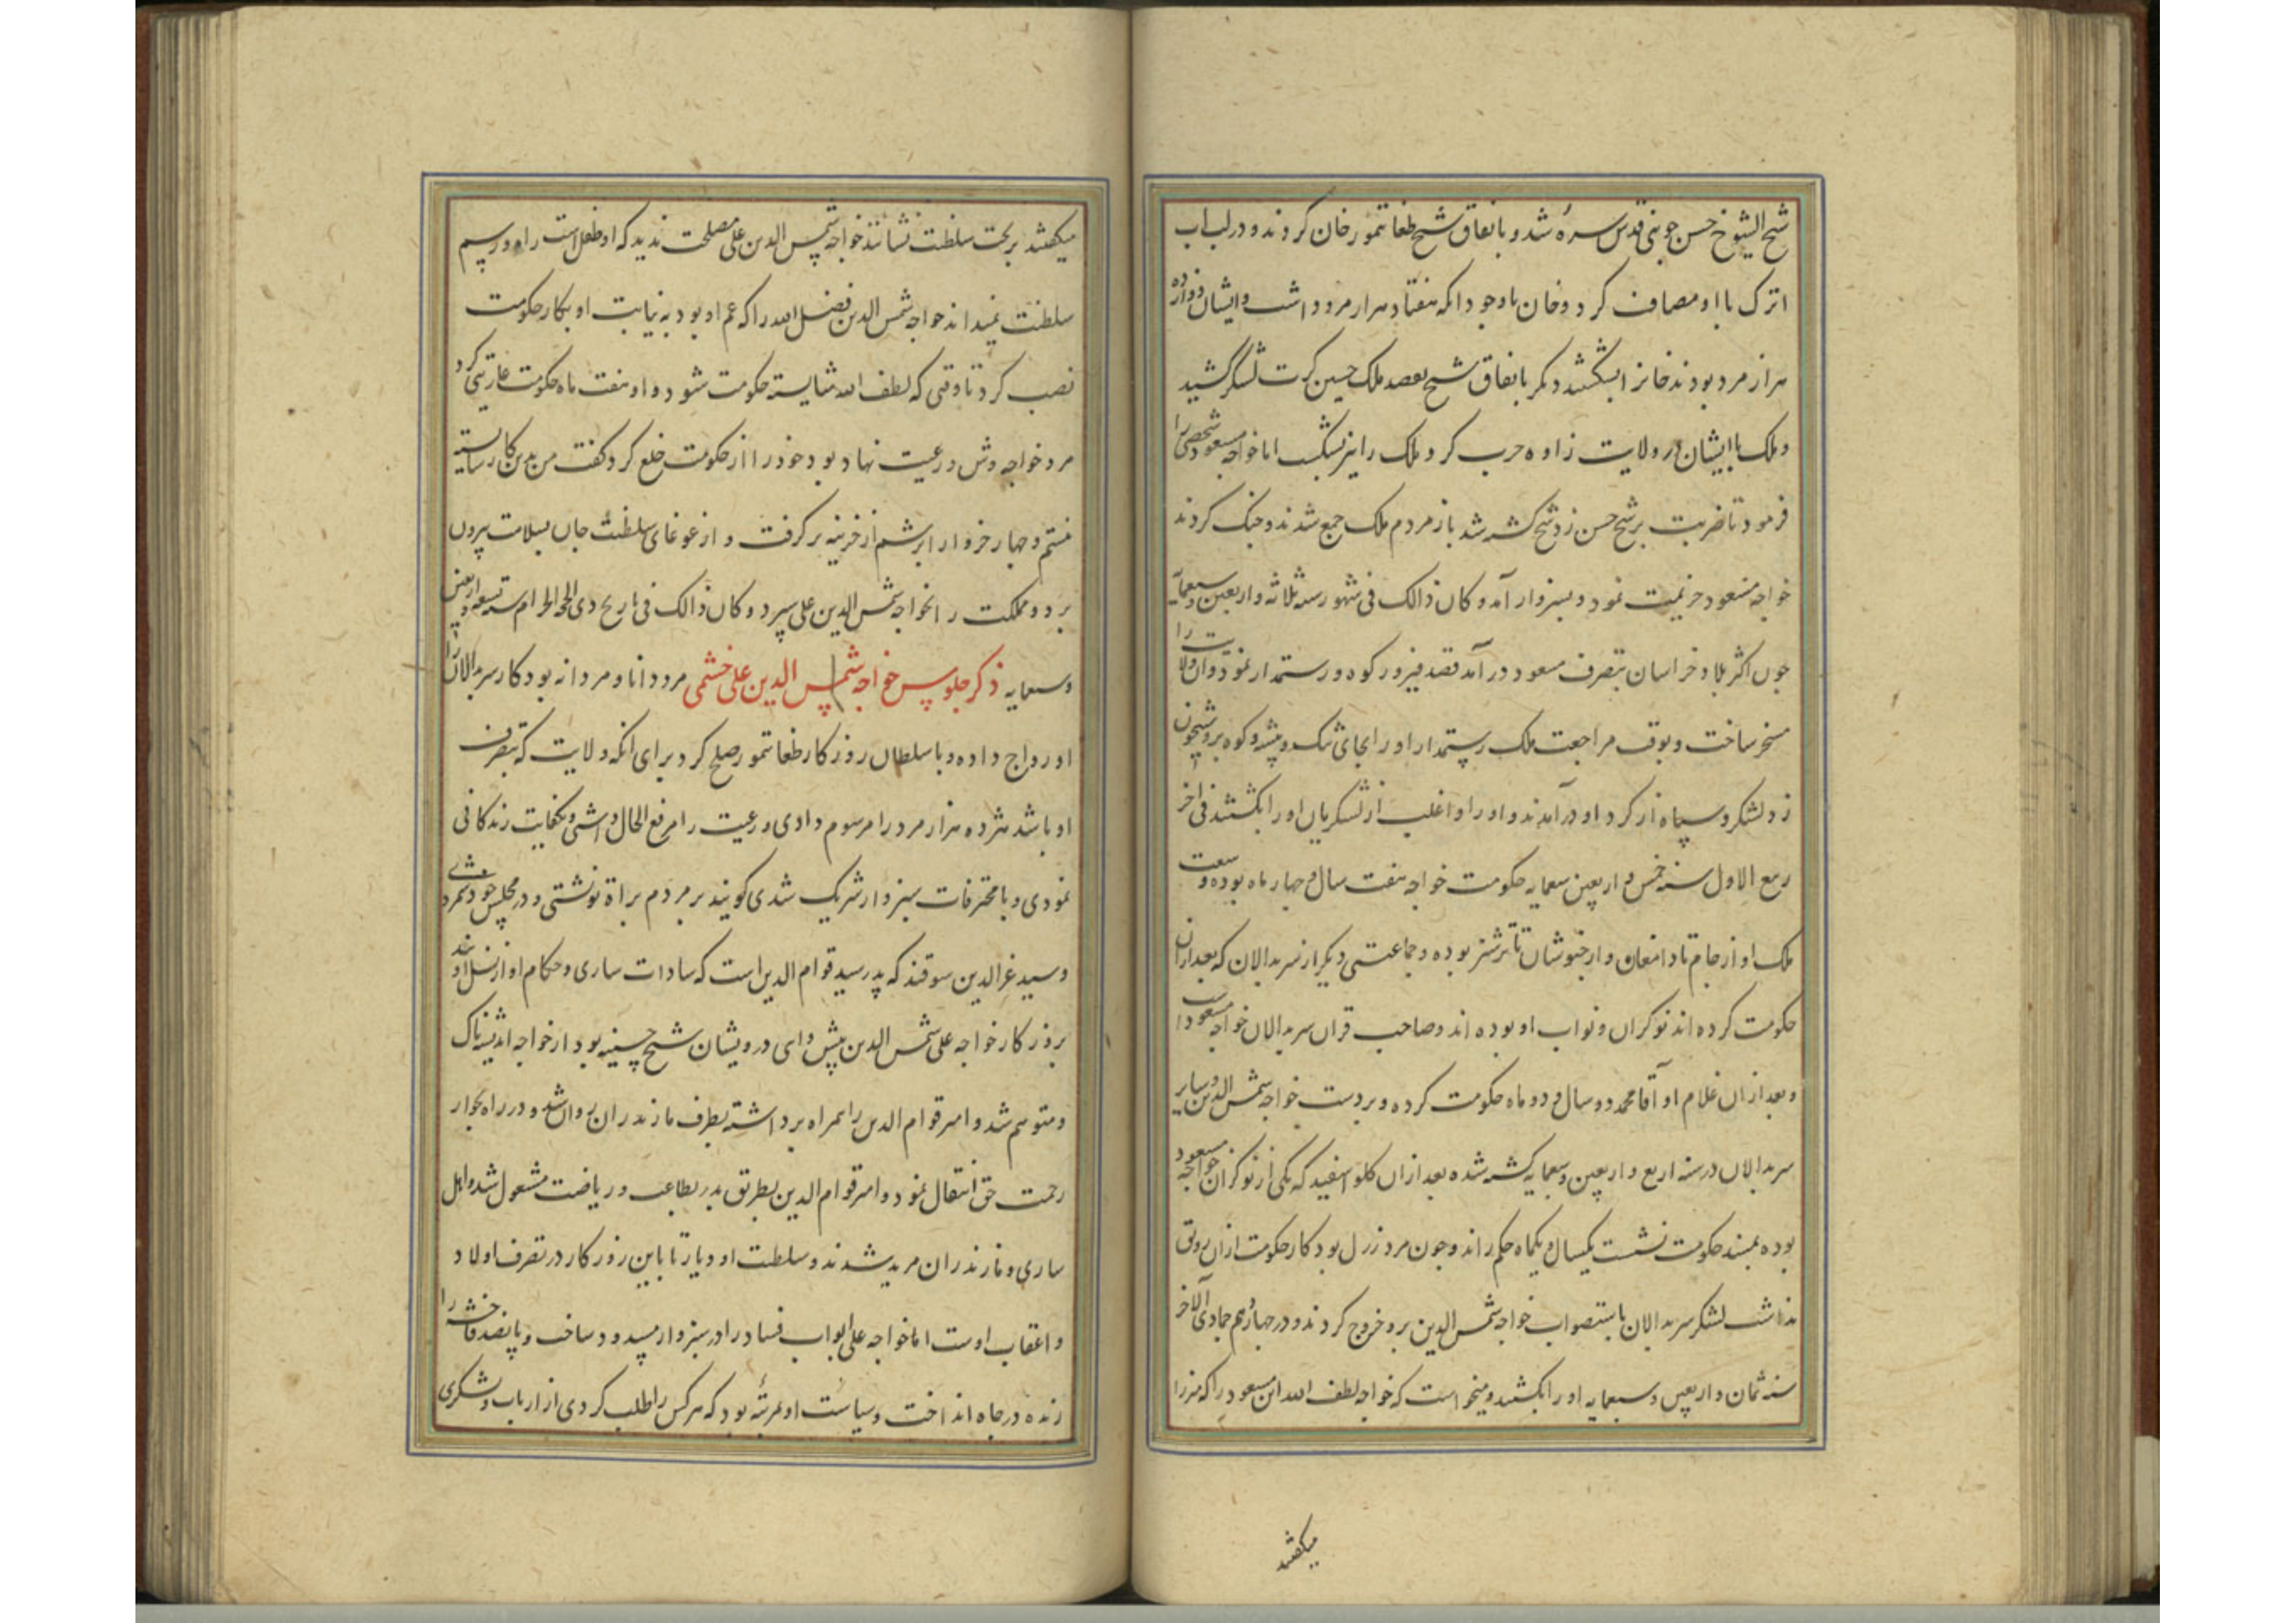 شیخ الشیوخ حسن جوینی قدس سره شد و باتفاق شیخ طغاتمور خان کردند و در لب اب
اترک با او مصاف کرد و خان باوجود انکه هفتاد هزار مرد داشت و ایشان دوازده
هزار مرد بودند خانرا بشکستند و دیگر باتفاق شیخ بقصد ملک حسین کرت لشکر کشید
و ملک با ایشان در ولایت زاوه حرب کرد و ملک را نیز بشکست اما خواجه مسعود شخصی را
فرمود تا ضربت بر شیخ حسن زد و شیخ کشته شد باز مردم ملک جمع شدند و جنک کردند
خواجه مسعود هزیمت نمود و بسبزوار آمد و کان ذالک فی شهور سنه ثلاثه و اربعین و سبعمایة
چون اکثر بلاد خراسان بتصرف مسعود در آمد قصد فیروز کوه و رستمدار نمود و ان ولایت را
مسخر ساخت و بوقت مراجعت ملک رستمدار او را بجای تنک و بیشه و کوه برو شبیخون
زد لشکر و سپاه از کرد او درآمدند و او را و اغلب از لشکریان او را بکشتند فی اخر
ربیع الاول سنه خمس و اربعین سبعمایه حکومت خواجه هفت سال و چهار ماه بوده و سعت
ملک او از جام تا دامغان و از خبوشان تا ترشیز بوده و جماعتی دیکر از سربدالان که بعد ازان
حکومت کرده اند نوکران و نواب او بوده اند و صاحب قران سربدالان خواجه مسعود است
و بعد ازان غلام او آقا محمد دو سال و دو ماه حکومت کرده و بر دست خواجه شمس الدین و سایر
سربدالان در سنه اربع و اربعین و سبعمایه کشته شده بعد ازان کلو اسفید که یکی از نوکران خواجه مسعود
بوده بمسند حکومت نشست یکسال و یکماه حکم راند و چون مرد زرل بود کار حکومت ازان رونق
نداشت لشکر سربدالان باستصواب خواجه شمس الدین برو خروج کردند و در چهاردهم جمادی الاخر
سنه ثمان و اربعین و سبعمایه او را بکشتند و میخواست که خواجه لطف الله ابن مسعود را که میرزا
میکفتند
میکفتند بر تخت سلطنت نشانند خواجه شمس الدین علی مصلحت ندید که او طفل است راه و رسم
سلطنت نمیداند خواجه شمس الدین فضل الله را که عم او بود به نیابت او بکار حکومت
نصب کرد تا وقتی که لطف الله شایسته حکومت شود و او هفت ماه حکومت عاریتی کرد
مرد خواجه وش و رعیت نهاد بود خود را از حکومت خلع کرد کفت من بدین کار شایسته
نیستم و چهار خروار ابریشم از خزینه بر کرفت و از غوغای سلطنت جان بسلامت بیرون
برد و مملکت را بخواجه شمس الدین علی سپرد و کان ذالک فی تاریخ ذی الحجه الحرام سنه تسعه و اربعین
و سبعمایه ذکر جلوس خواجه شمس الدین علی خشمی مرد دانا و مردانه بود کار سربدالان را
او رواج داده و با سلطان روزکار طغاتمور صلح کرد برای انکه ولایت که بتصرف
او باشد هژده هزار مرد را مرسوم دادی و رعیت را مرفع الحال داشتی و بکفایت زندکانی
نمودی و با محترفات سبزوار شریک شدی کویند بر مردم براة نوشتی و در مجلس خود بمرد
و سید عزالدین سوقند که پدر سید قوام الدین است که سادات ساری و حکام او از نسل اویند
بروزکار خواجه علی شمس الدین پیش وای درویشان شیخ حسینیه بود از خواجه اندیشه ناک
و متوهم شد و امیر قوام الدین را همراه برداشته بطرف مازندران روان شد و در راه بجوار
رحمت حق انتقال نمود و امیر قوام الدین بطریق پدر بطاعت و ریاضت مشغول شد و اهل
ساری و مازندران مرید شدند و سلطنت او دیار تا باین روزکار در تصرف اولاد
و اعقاب اوست اما خواجه علی ابواب فساد را در سبزوار مسدود ساخت و پانصد فاحشه را
زنده در چاه انداخت و سیاست او بمرتبه بود که هر کس را طلب کردی از ارباب و لشکری